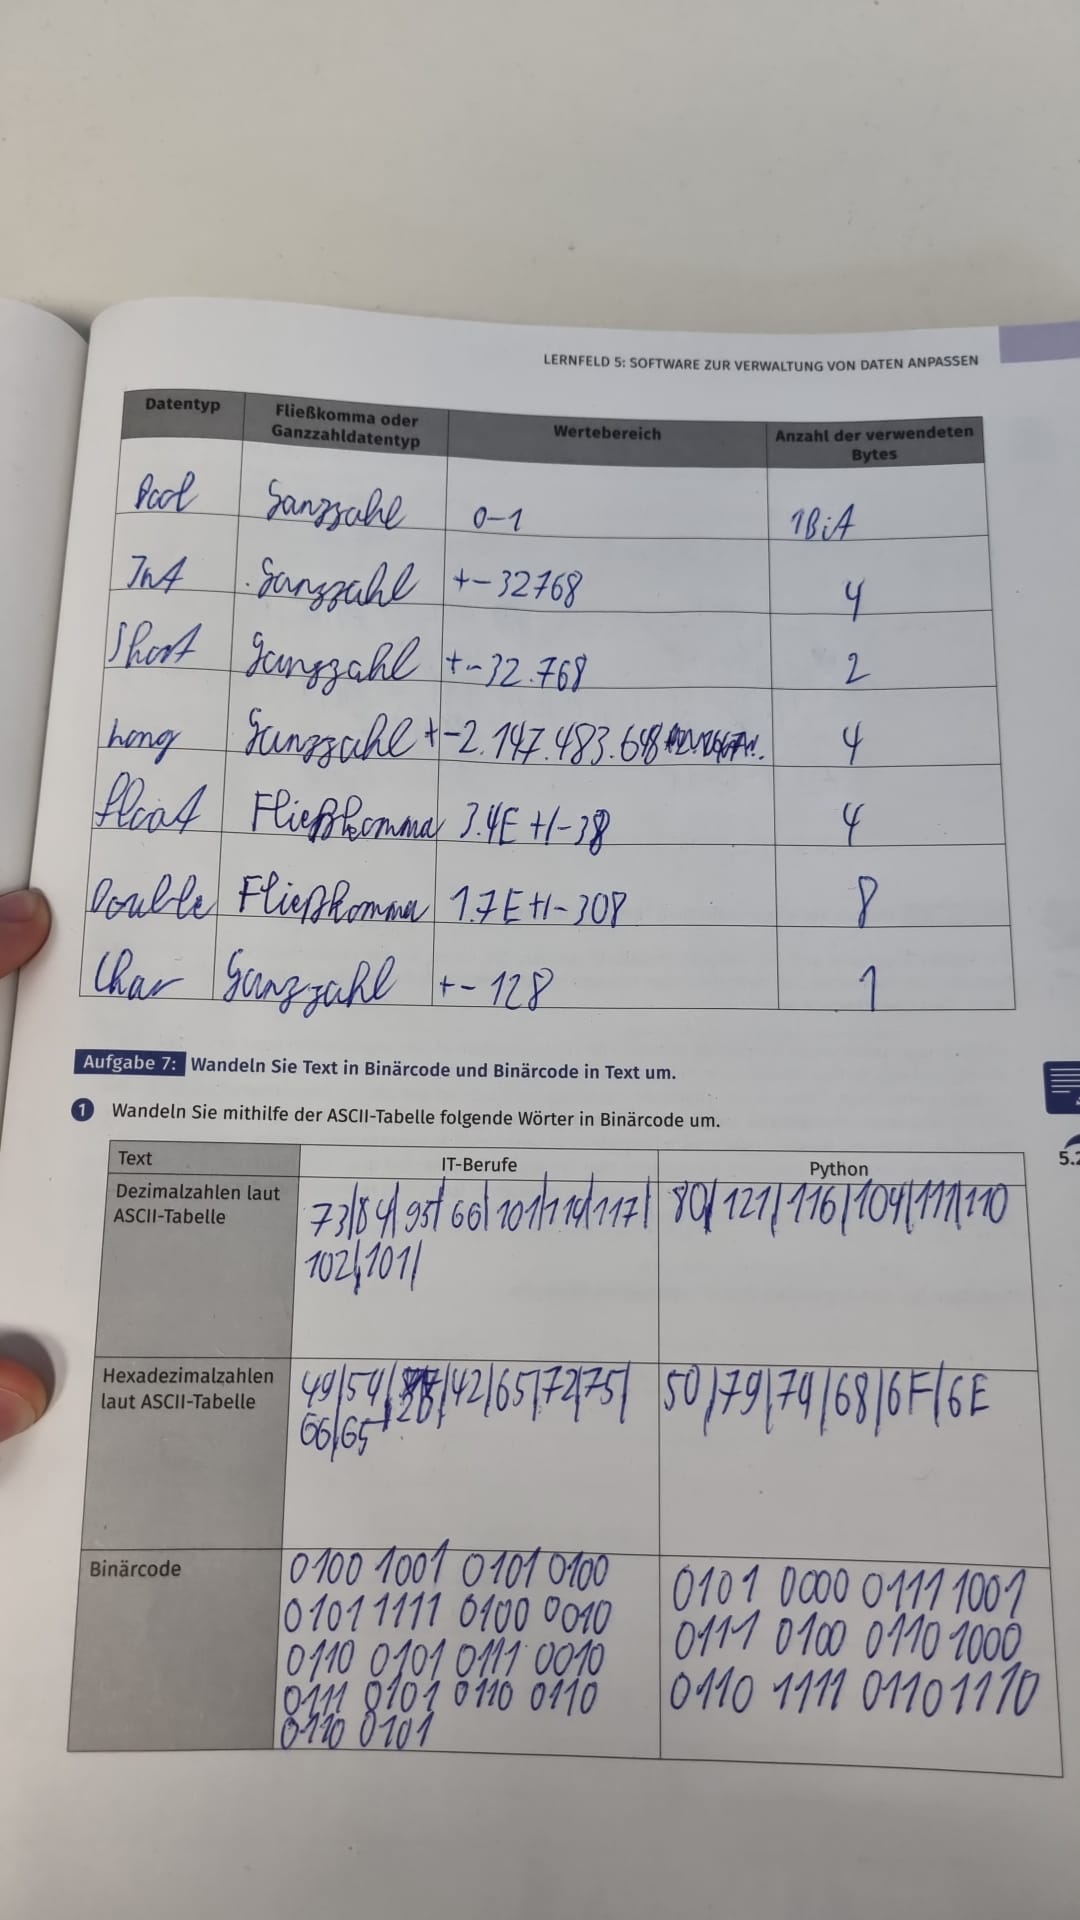 LERNFELD 5: SOFTWARE ZUR VERWALTUNG VON DATEN ANPASSEN
Datentyp Fließkomma oder Ganzzahldatentyp Wertebereich Anzahl der verwendeten Bytes
Bool Ganzzahl 0-1 1Bit
Int Ganzzahl +-32768 4
Short Ganzzahl +-32.768 2
Long Ganzzahl +-2.147.483.648 4
float Fließkomma 3.4E +/-38 4
Double Fließkomma 1.7E +/-308 8
Char Ganzzahl +-128 1
Aufgabe 7: Wandeln Sie Text in Binärcode und Binärcode in Text um.
1 Wandeln Sie mithilfe der ASCII-Tabelle folgende Wörter in Binärcode um.
Text IT-Berufe Python
Dezimalzahlen laut ASCII-Tabelle
73/84/95/66/101/114/117/
102/101/
80/121/116/104/111/110
Hexadezimalzahlen laut ASCII-Tabelle
49/54/ /42/65/72/75/
66/65
50/79/74/68/6F/6E
Binärcode
0100 1001 0101 0100
0101 1111 0100 0010
0110 0101 0111 0010
0111 0101 0110 0110
0110 0101
0101 0000 0111 1001
0111 0100 0110 1000
0110 1111 0110 1110
5.2